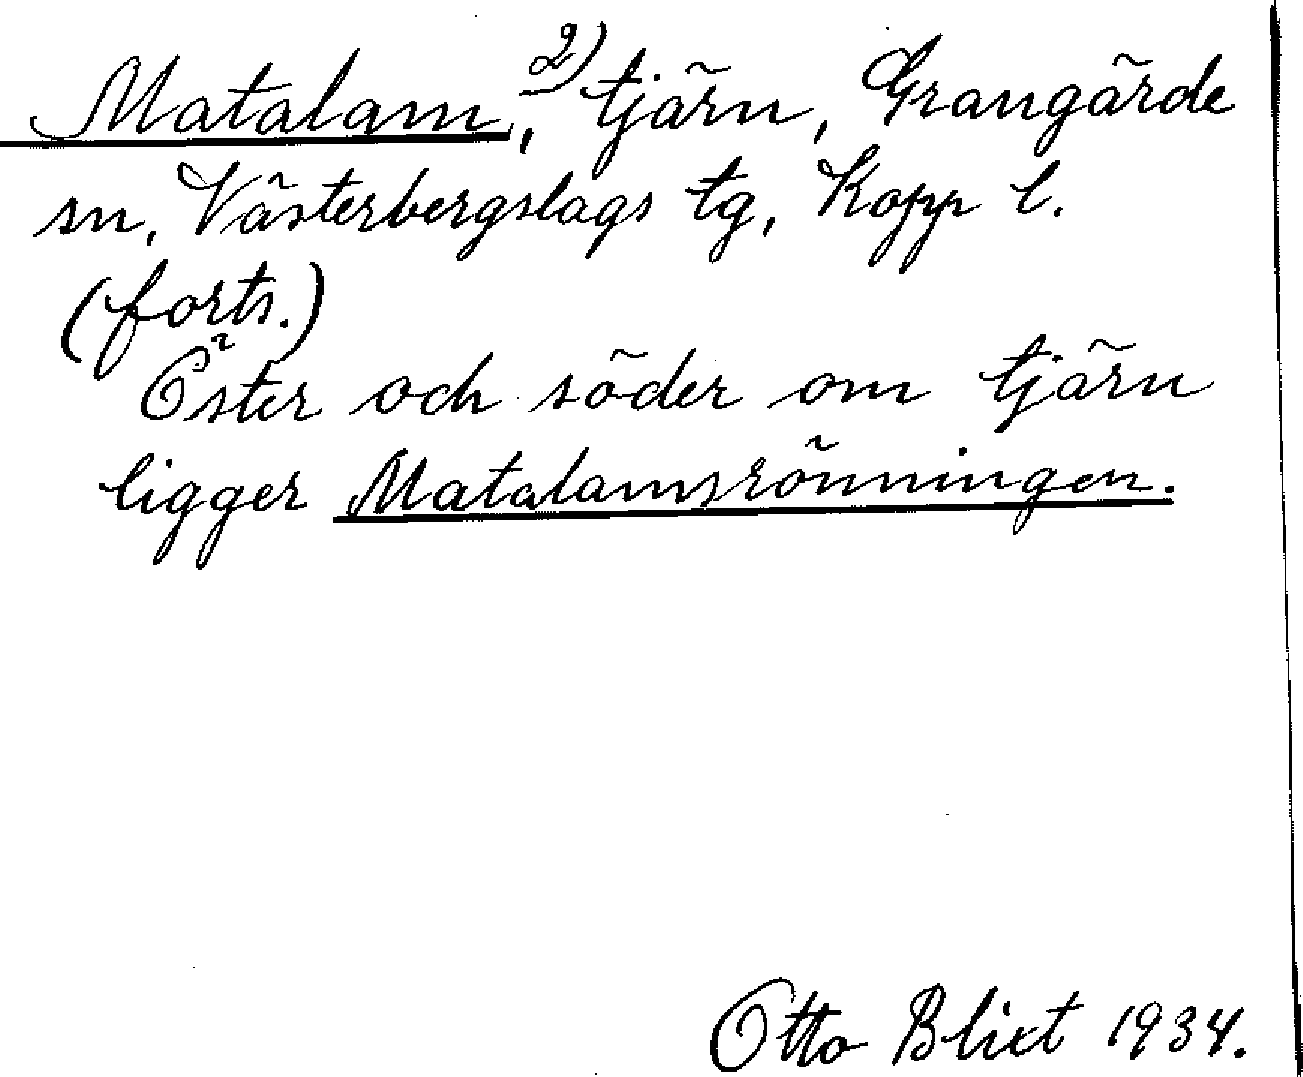 Matalam, 2) tjärn, Grangärde
sn, Västerbergslags tg, Kopp l.
(forts.)
Öster och söder om tjärn
ligger Matalamsrönningen.
Otto Blixt 1934.